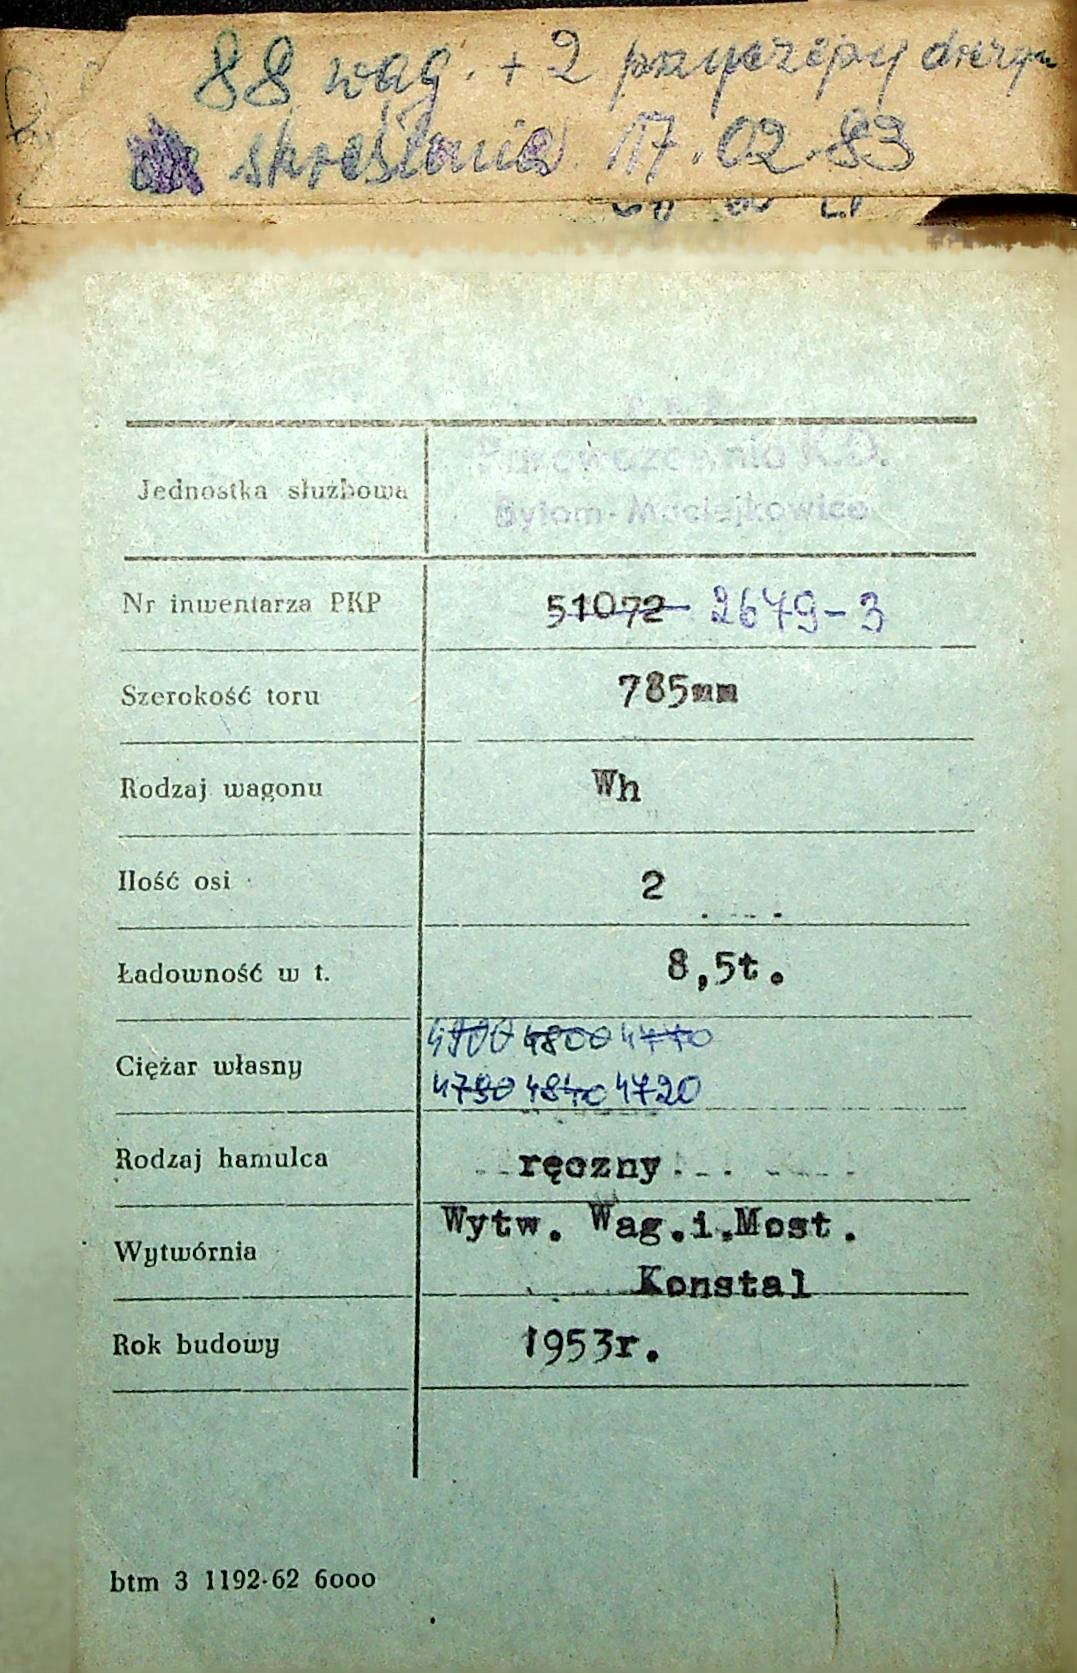 88 wag. + 2 przyczepy
skreślenie 17.02.83
Jednostka służbowa
Parowozownia K.D.
Bytom-Maciejkowice
Nr inwentarza PKP 51072 2679-3
Szerokość toru 785mm
Rodzaj wagonu Wh
Ilość osi 2
Ładowność w t. 8,5t.
4900 4800 4770
Ciężar własny
4790 4840 4720
Rodzaj hamulca ręczny
Wytw. Wag.i.Most.
Wytwórnia
Konstal
Rok budowy 1953r.
btm 3 1192-62 6000